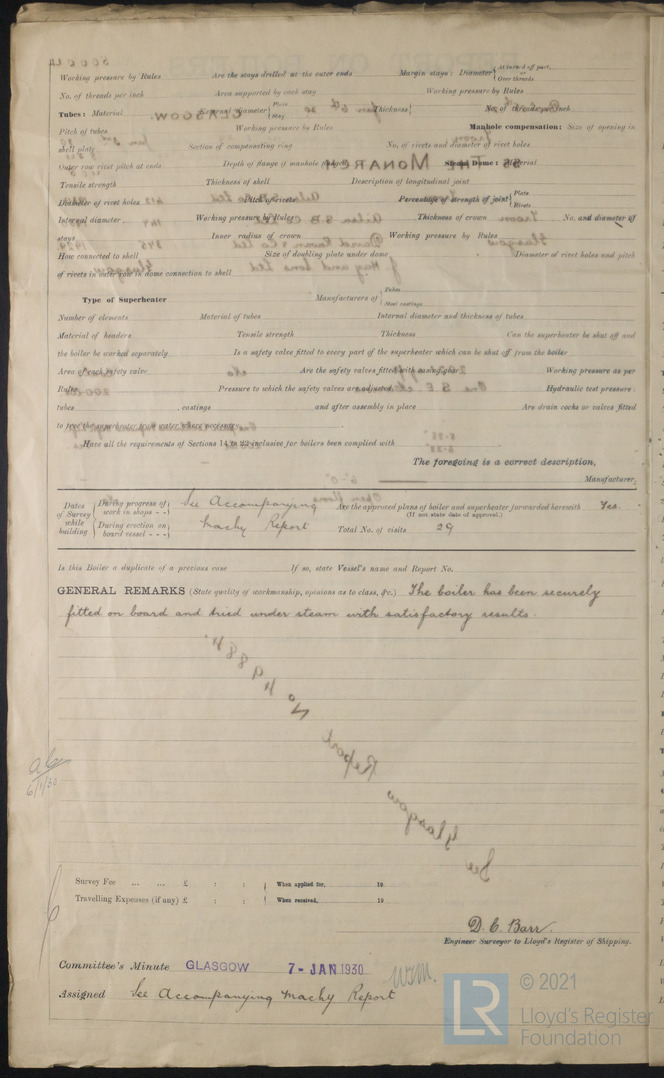 Working pressure by Rules Are the stays drilled at the outer ends Margin stays: Diameter { At turned off part, Over threads
No. of threads per inch Area supported by each stay Working pressure by Rules
Tubes: Material External diameter { Plain Stay Thickness { No. of threads per inch
Pitch of tubes Working pressure by Rules Manhole compensation: Size of opening in
shell plate Section of compensating ring No. of rivets and diameter of rivet holes
Outer row rivet pitch at ends Depth of flange if manhole flanged Steam Dome: Material
Tensile strength Thickness of shell Description of longitudinal joint
Diameter of rivet holes Pitch of rivets Percentage of strength of joint { Plate Rivets
Internal diameter Working pressure by Rules Thickness of crown No. and diameter of
stays Inner radius of crown Working pressure by Rules
How connected to shell Size of doubling plate under dome Diameter of rivet holes and pitch
of rivets in outer row in dome connection to shell
Type of Superheater Manufacturers of { Tubes Steel castings
Number of elements Material of tubes Internal diameter and thickness of tubes
Material of headers Tensile strength Thickness Can the superheater be shut off and
the boiler be worked separately Is a safety valve fitted to every part of the superheater which can be shut off from the boiler
Area of each safety valve Are the safety valves fitted with easing gear Working pressure as per
Rules Pressure to which the safety valves are adjusted Hydraulic test pressure:
tubes castings and after assembly in place Are drain cocks or valves fitted
to free the superheater from water where necessary
Have all the requirements of Sections 14 to 22 inclusive for boilers been complied with
The foregoing is a correct description,
Manufacturer.
Dates of Survey while building { During progress of work in shops - - } See Accompanying Are the approved plans of boiler and superheater forwarded herewith Yes.
(If not state date of approval.)
{ During erection on board vessel - - - } Machy Report Total No. of visits 29
Is this Boiler a duplicate of a previous case If so, state Vessel's name and Report No.
GENERAL REMARKS (State quality of workmanship, opinions as to class, &c.) The boiler has been securely
fitted on board and tried under steam with satisfactory results.
6/1/30
Survey Fee ... ... £ : : { When applied for, 19
Travelling Expenses (if any) £ : : { When received, 19
D. C. Barr.
Engineer Surveyor to Lloyd's Register of Shipping.
Committee's Minute GLASGOW 7-JAN 1930
Assigned See Accompanying Machy Report
© 2021
LR Lloyd's Register
Foundation